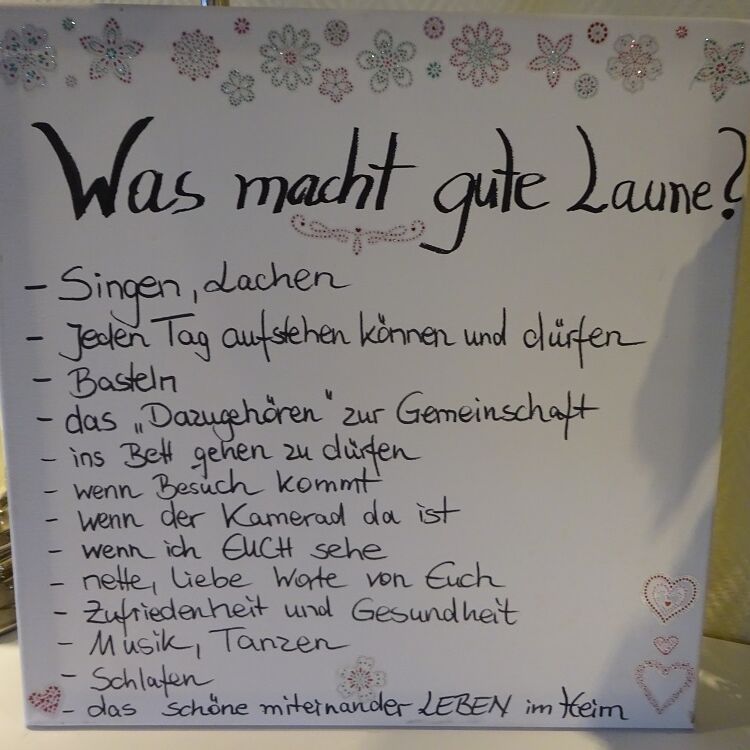 Was macht gute Laune?
- Singen, Lachen
- Jeden Tag aufstehen können und dürfen
- Basteln
- das „Dazugehören" zur Gemeinschaft
- ins Bett gehen zu dürfen
- wenn Besuch kommt
- wenn der Kamerad da ist
- wenn ich EUCH sehe
- nette, liebe Worte von Euch
- Zufriedenheit und Gesundheit
- Musik, Tanzen
- Schlafen
- das schöne miteinander LEBEN im Heim